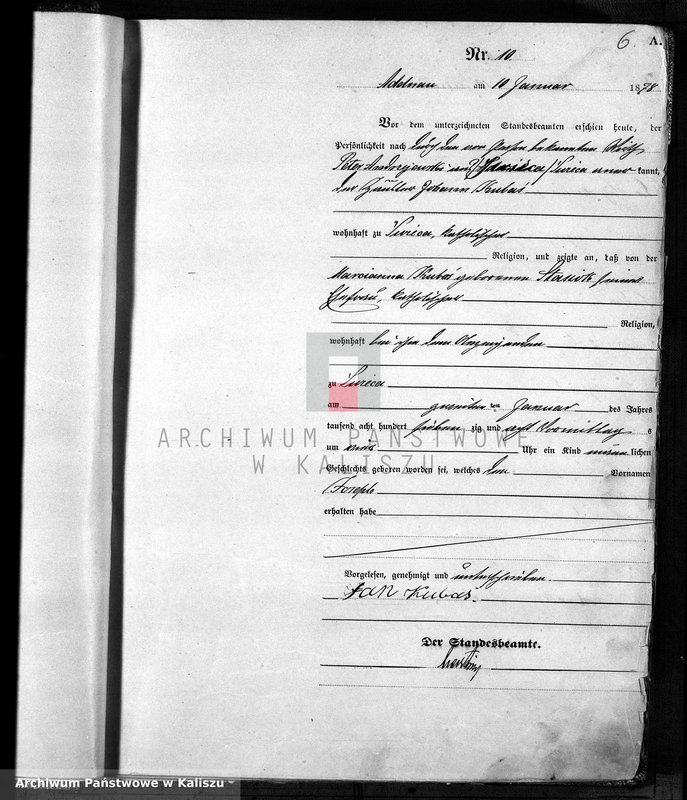 6 A.
Nr. 10
Adelnau am 10 Januar 1878
Vor dem unterzeichneten Standesbeamten erschien heute, der
Persönlichkeit nach durch den von Person bekannten
Peter Andrzejewski kannt,
der Häusler Johann Kubas
wohnhaft zu katholischer
Religion, und zeigte an, daß von der
Marcianna Kubas geborenen Stasiak seiner
Ehefrau, katholischer
Religion,
wohnhaft bei ihm dem Anzeigenden
zu
am zweiten Januar des Jahres
tausend acht hundert sieben zig und acht Vormittags
um Uhr ein Kind männlichen
Geschlechts geboren worden sei, welches den Vornamen
Joseph
erhalten habe
Vorgelesen, genehmigt und unterschrieben.
Jan Kubas.
Der Standesbeamte.
ARCHIWUM PAŃSTWOWE
W KALISZU
Archiwum Państwowe w Kaliszu